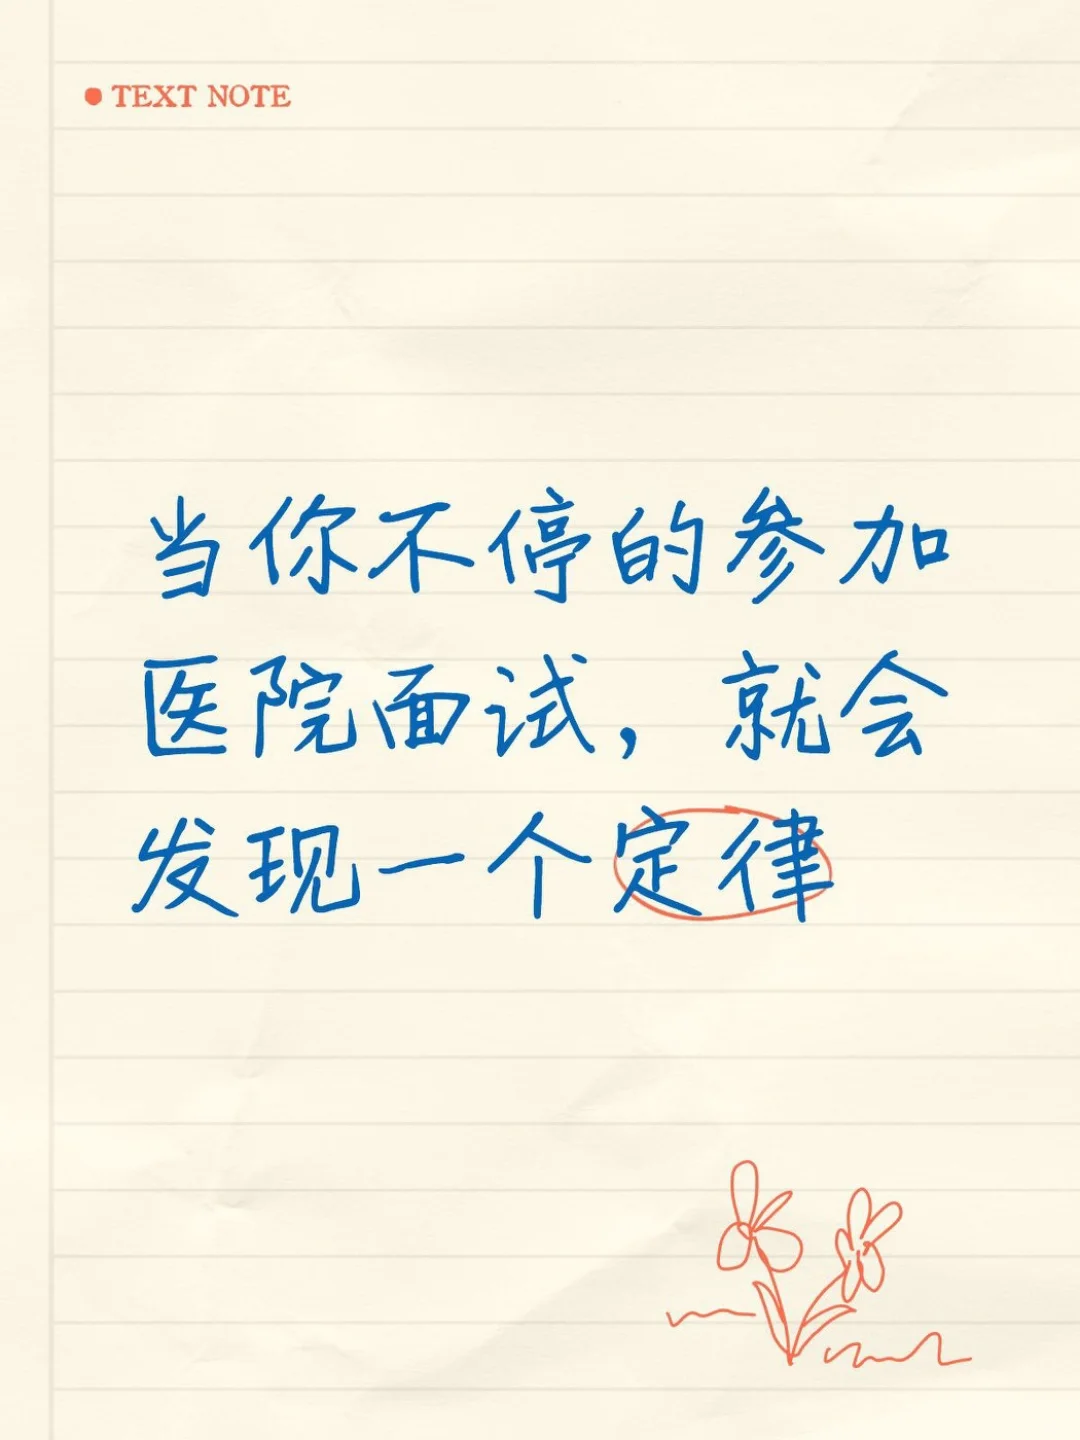 TEXT NOTE
当你不停的参加
医院面试，就会
发现一个定律